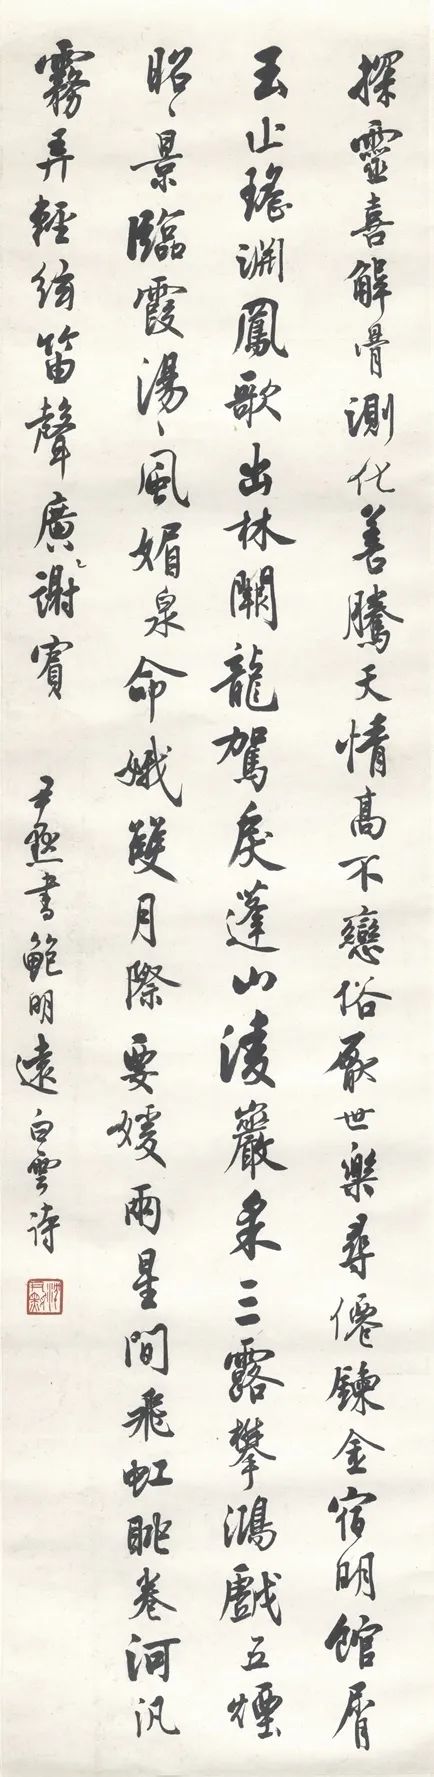 探靈喜解骨測化善騰天情高不戀俗厭世樂尋僊鍊金宿明館屑
玉止瑤淵鳳歌出林闕龍駕戾蓬山凌巖采三露攀鴻戲五煙
昭〻景臨霞湯〻風媚泉命娥雙月際要媛兩星間飛虹眺卷河汎
霧弄輕絃笛聲廣〻謝賓
尹默書鮑明遠白雲詩
沈尹默